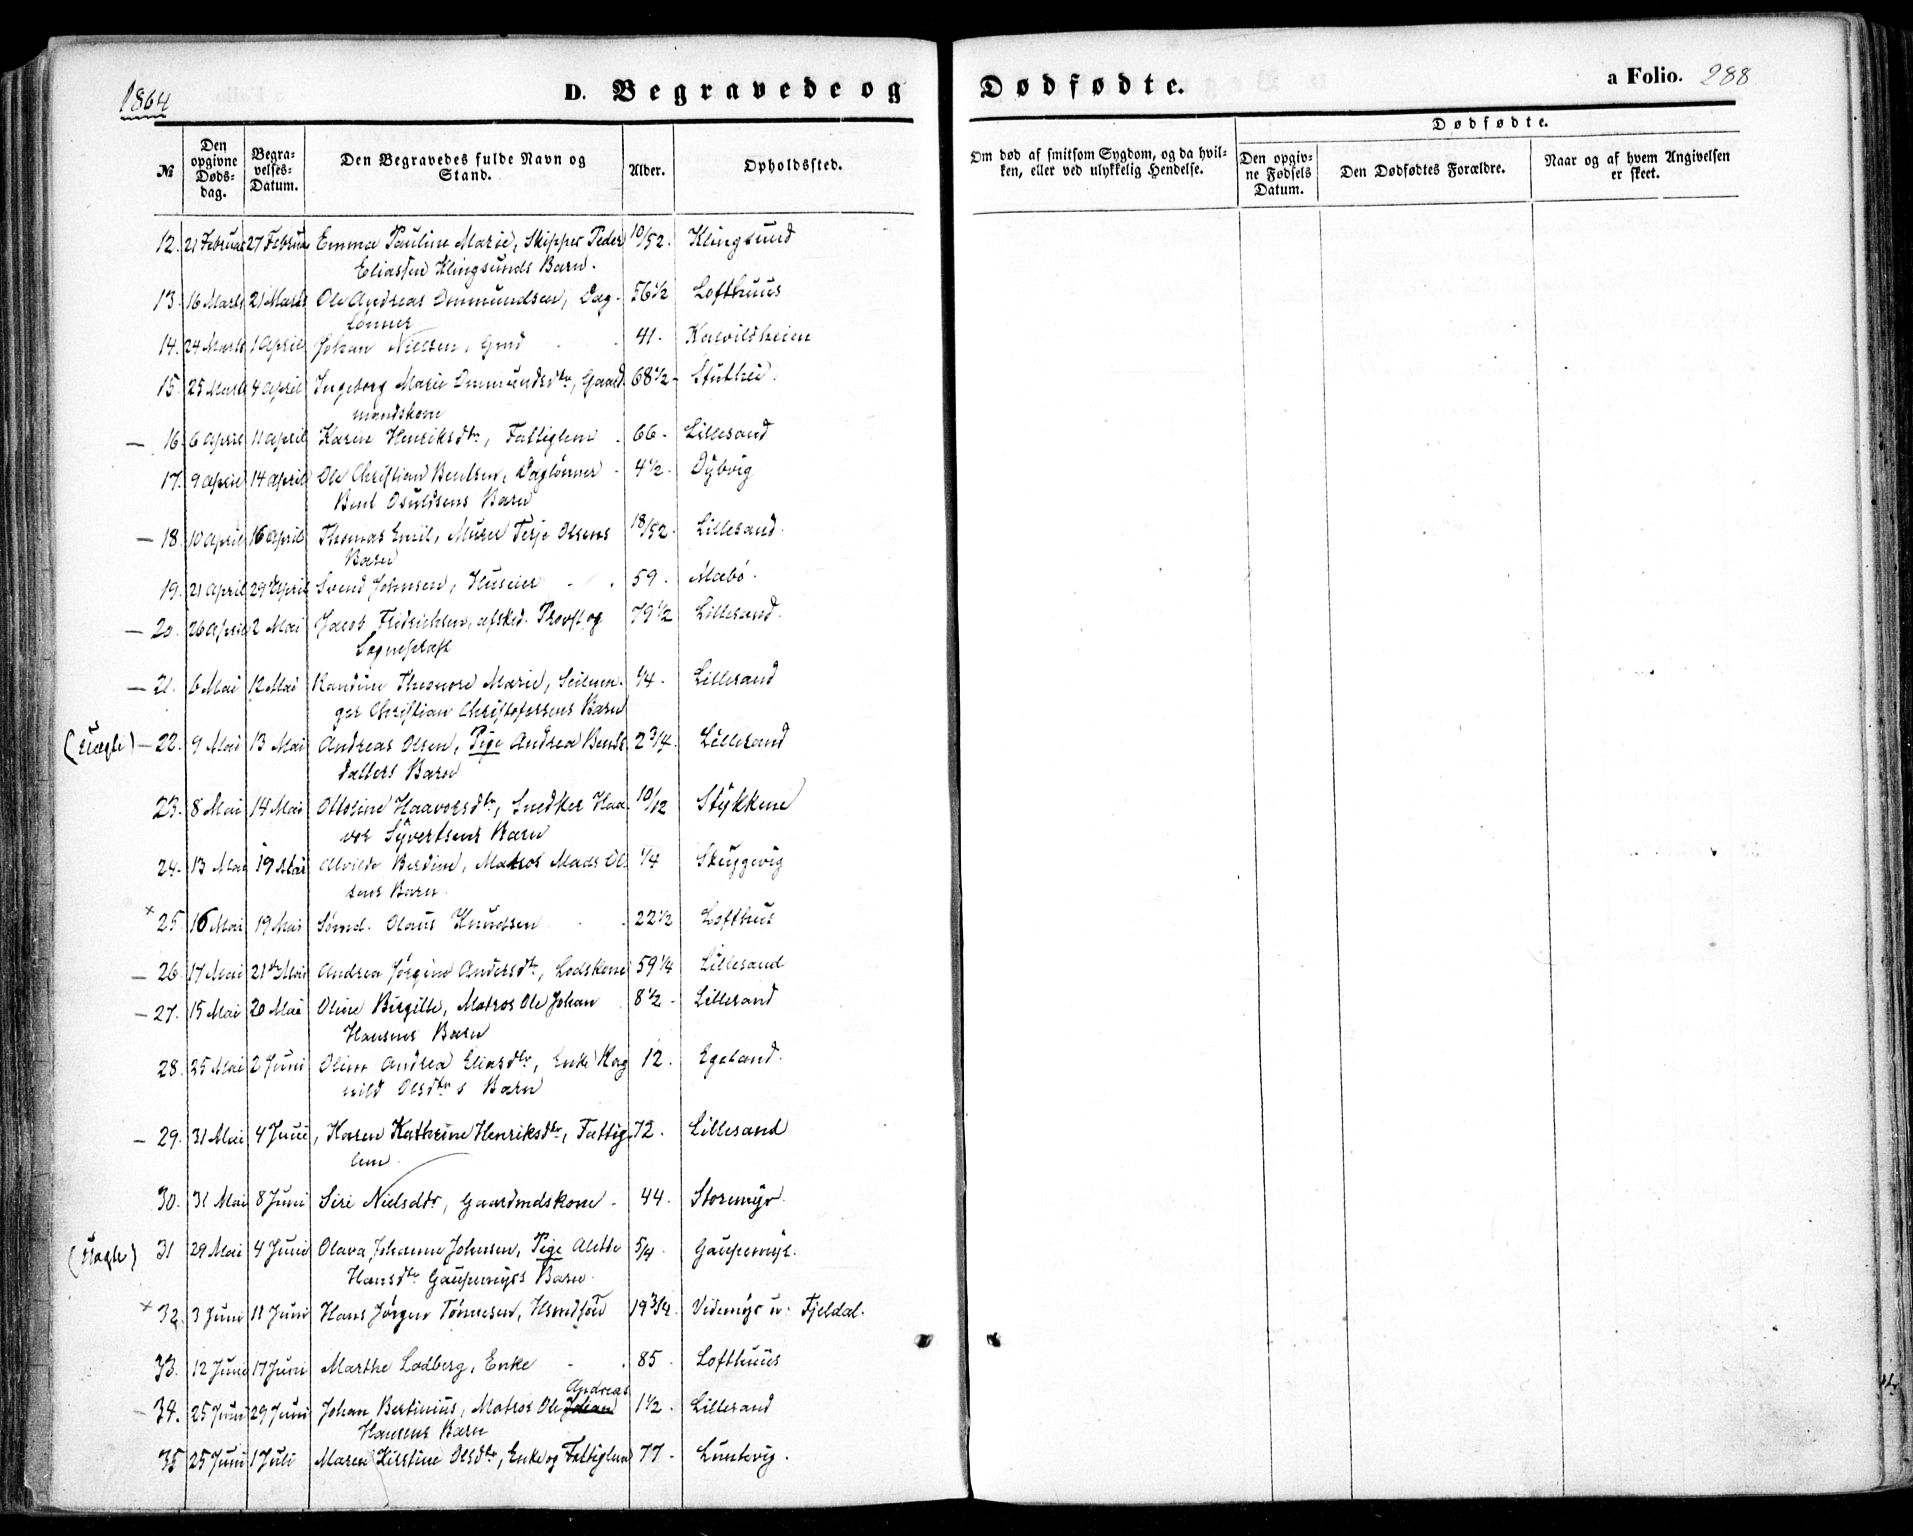 1864
D. Begravede og Dødfødte.
a Folio. 288
№
Den opgivne Døds-dag.
Begra-velses-Datum.
Den Begravedes fulde Navn og Stand.
Alder.
Opholdssted.
Om død af smitsom Sygdom, og da hvil-ken, eller ved ulykkelig Hendelse.
Dødfødte.
Den opgiv-ne Fødsels Datum.
Den Dødfødtes Forældre.
Naar og af hvem Angivelsen er skeet.
12. 21 Februar 27 Februar Emma Pauline Marie, Skipper Peder 10/52. Klingsund
Eliassen Klingsunds Barn.
13. 16 Marts 21 Marts Ole Andreas Ommundsen, Dag- 56½ Lofthuus
lønner
14. 24 Marts 1 April Johan Nielsen, Gmd 41. Kalvildheien
15. 25 Marts 4 April Ingeborg Marie Ommundsdtr, Gaard- 68½ Stuthei.
mandskone
— 16. 6 April 11 April Karen Henriksdtr, Fattiglem 66. Lillesand
17. 9 April 14 April Ole Christian Bentsen, Daglønner 4½ Dybvig
Bent Osuldsens Barn
— 18. 10 April 16 April Thomas Emil, Murer Terje Olsens 18/52. Lillesand.
Barn
19. 21 April 29 April Svend Johnsen, Huseier 59. Mæbø.
— 20. 26 April 2 Mai Jacob Fridrichsen, afsked. Provst og 79½ Lillesand.
Sogneprest
— 21. 6 Mai 12 Mai Randine Theonore Marie, Seilmа-¼. Lillesand
ger Christian Christofersens Barn
(Uægte) — 22. 9 Mai 13 Mai Andreas Olsen, Pige Andrea Bents- 2¾. Lillesand
datters Barn
23. 8 Mai 14 Mai Ottoline Haavorsdtr, Snedker Haa- 10/12 Stykkene
vor Syvertsens Barn
24. 13 Mai 19 Mai Alvilde Berdine, Matros Mads Ol- ¼ Skuggevig
sens Barn.
× 25. 16 Mai 19 Mai Sømd. Olaus Knudsen 22½ Lofthus
— 26. 17 Mai 21de Mai Andrea Jørgine Andersdtr, Lodskone 59¼ Lillesand
— 27. 15 Mai 20 Mai Oline Birgitte, Matros Ole Johan 8½. Lillesand
Hansens Barn
28. 25 Mai 2 Juni Oline Andrea Eliasdtr, Enke Rag- 12. Egeland.
nild Olsdtrs Barn
— 29. 31 Mai 4 Juni Karen Kathrine Henriksdtr, Fattig- 72. Lillesand
lem.
30. 31 Mai 8 Juni Siri Nielsdtr, Gaardmdskone 44. Storemyr.
(Uægte) 31 29 Mai 4 Juni Olava Johanne Johnsen, Pige Alette 5/4. Gaupemyr.
Hansdtr Gaupemyrs Barn.
× 32. 3 Juni 11 Juni Hans Jørgen Tønnesen, 19¾. Videmyr u. Fjeldal.
33. 12 Juni 17 Juni Marthe Lodberg, Enke 85. Lofthuus
Andreas
— 34. 25 Juni 29 Juni Johan Bertinius, Matros Ole Johan 1½. Lillesand
Hansens Barn
35 25 Juni 1 Juli Maren Kirstine Olsdtr, Enke og Fattiglem 77. Luntevig.